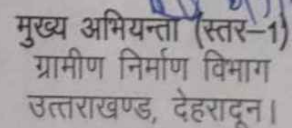 मुख्य अभियन्ता (स्तर–1)
ग्रामीण निर्माण विभाग
उत्तराखण्ड, देहरादून।